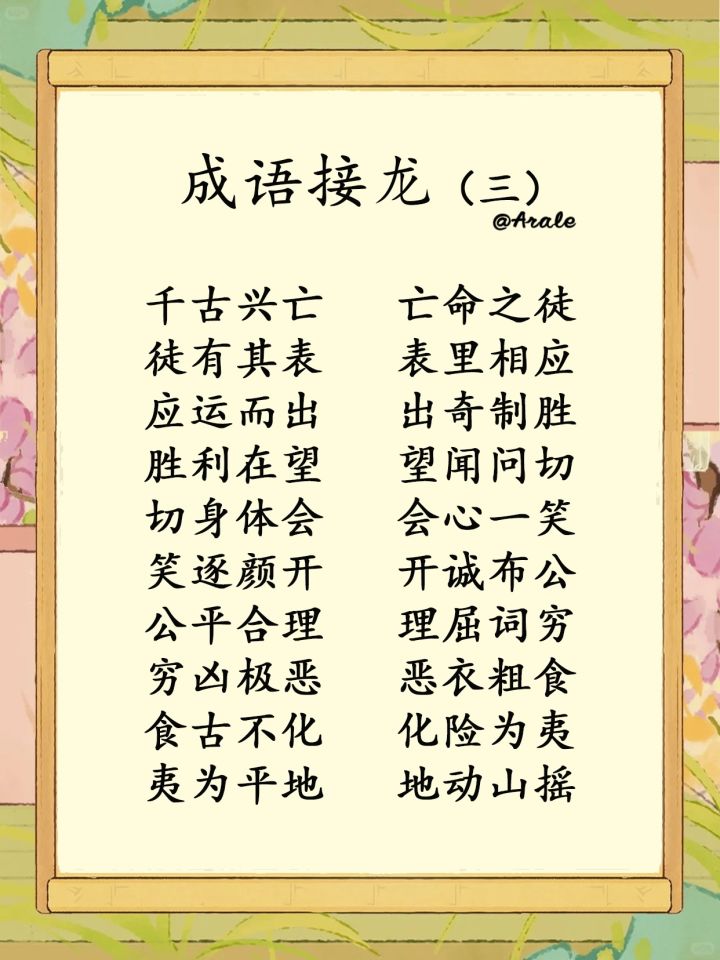 成语接龙（三）
@Arale
千古兴亡 亡命之徒
徒有其表 表里相应
应运而出 出奇制胜
胜利在望 望闻问切
切身体会 会心一笑
笑逐颜开 开诚布公
公平合理 理屈词穷
穷凶极恶 恶衣粗食
食古不化 化险为夷
夷为平地 地动山摇